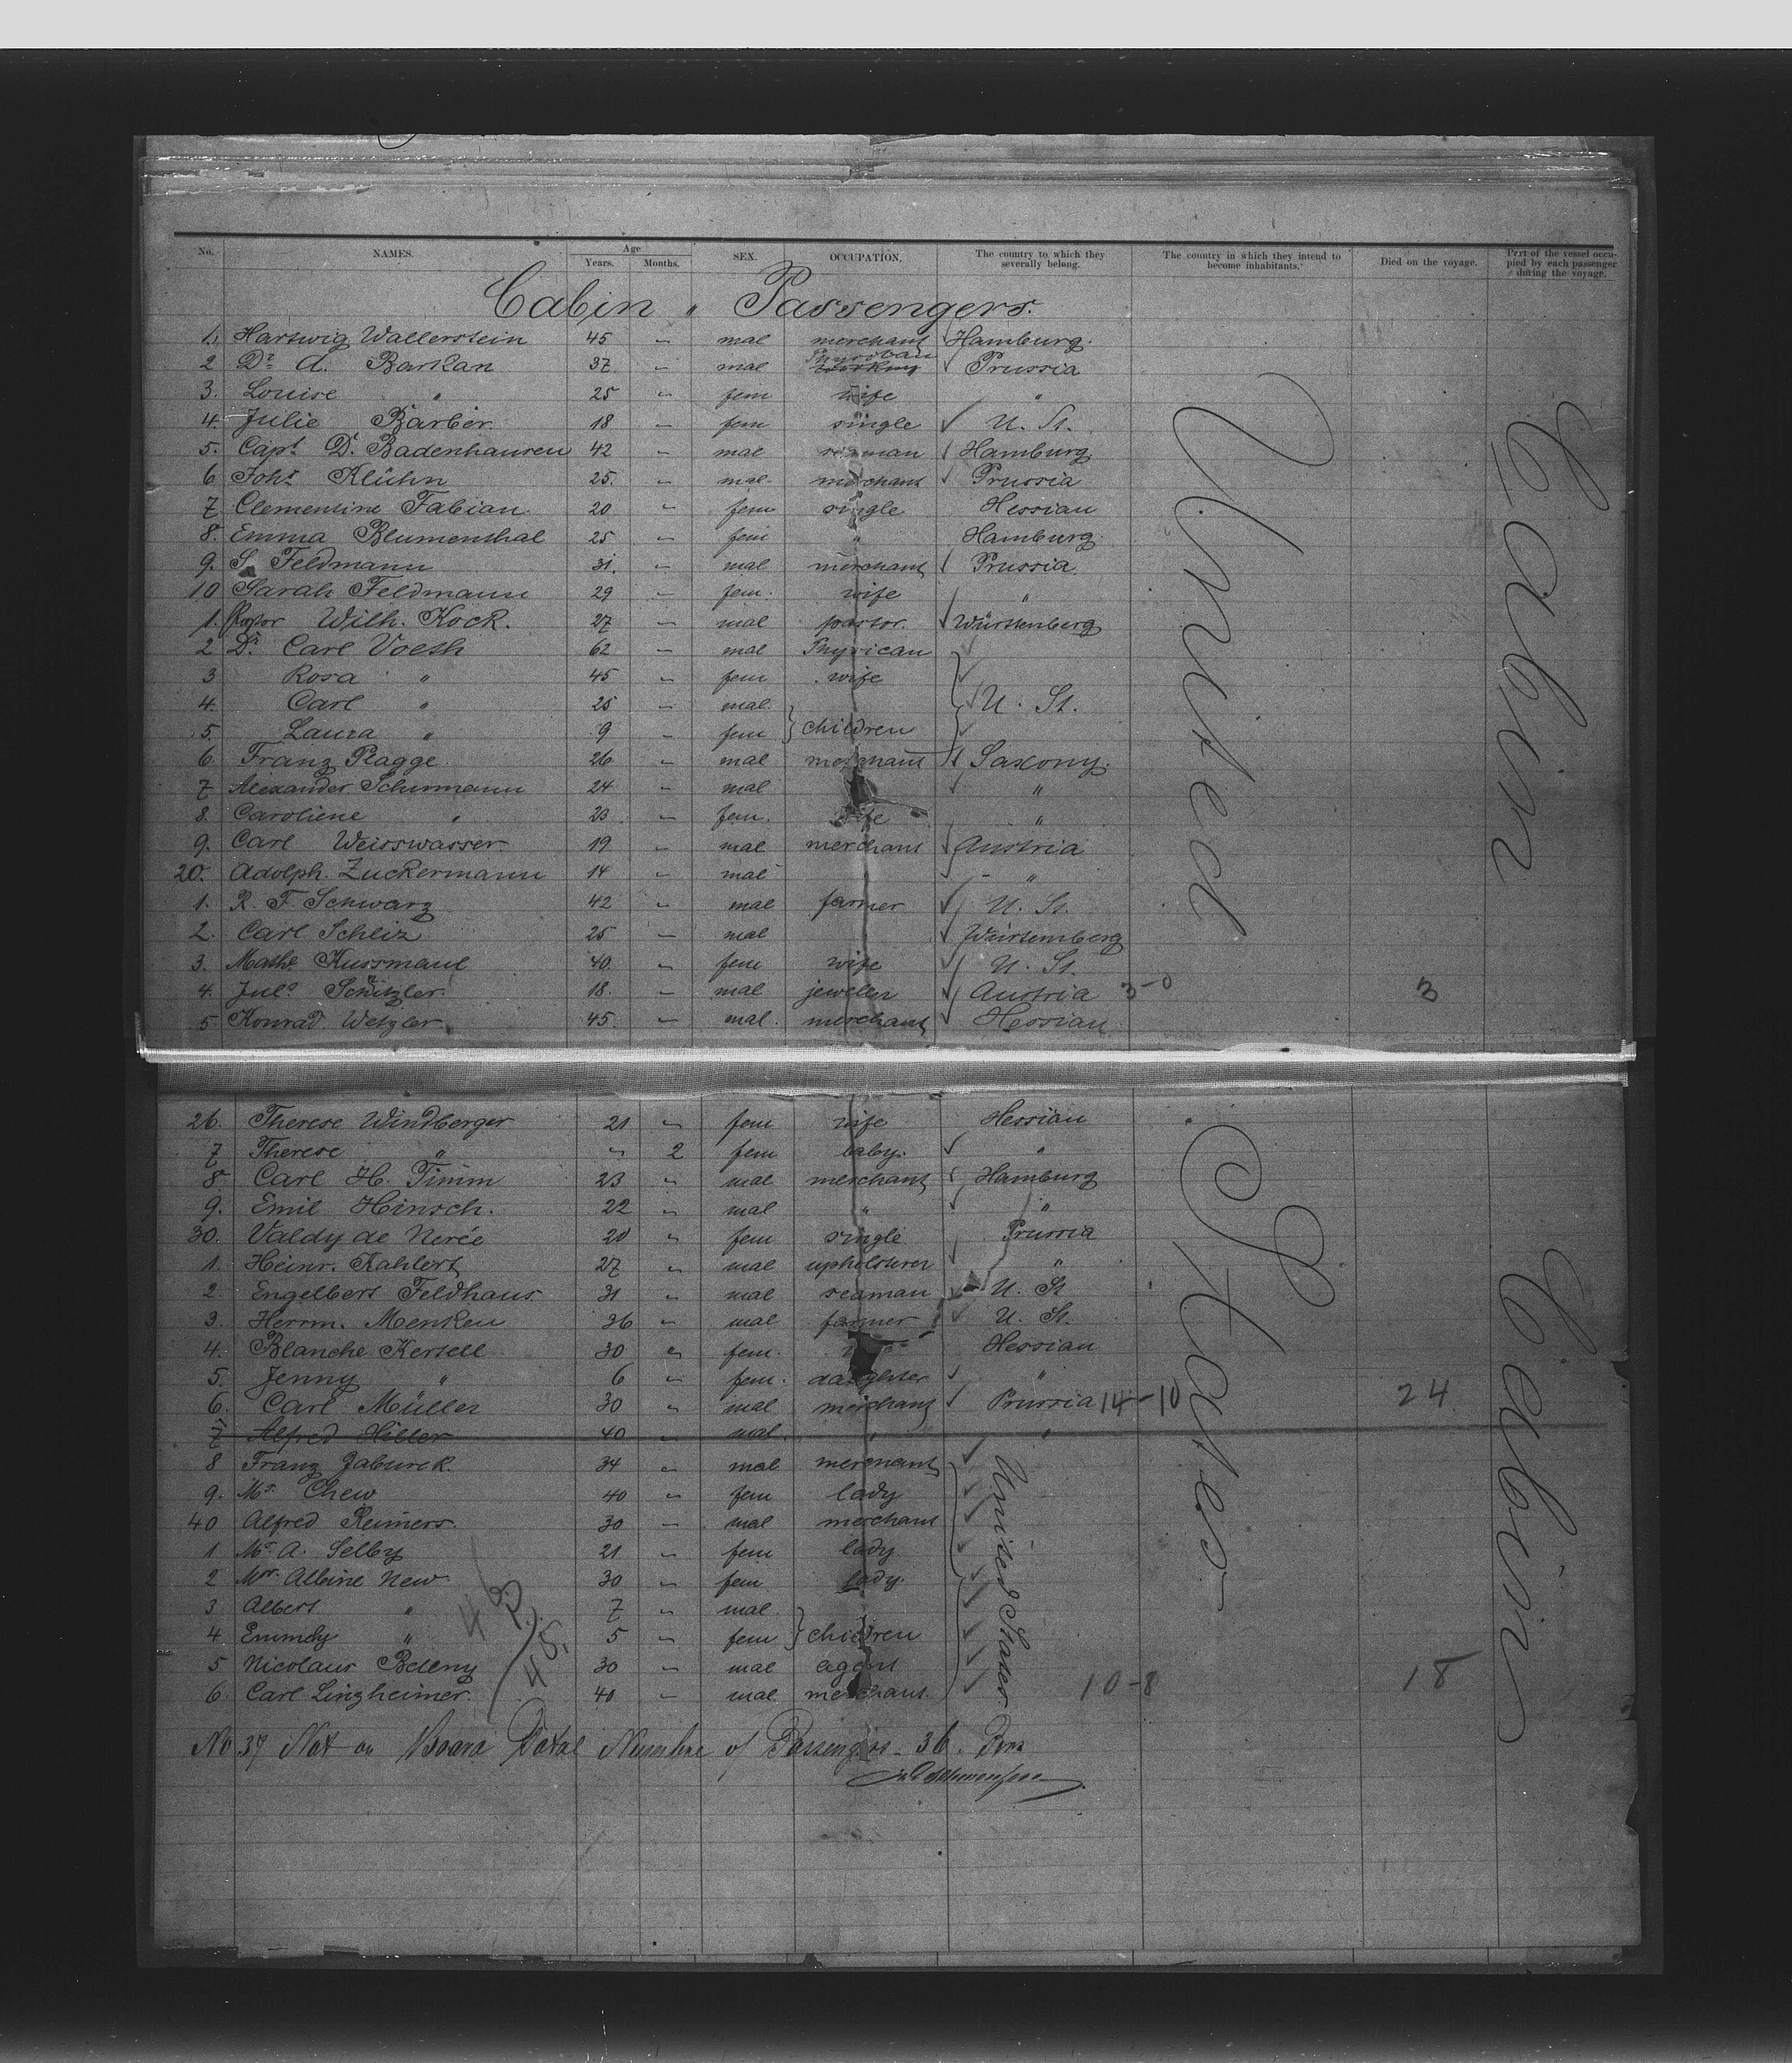 No. NAMES. Age Years. Months. SEX. OCCUPATION. The country to which they severally belong. The country in which they intend to become inhabitants. Died on the voyage. Part of the vessel occupied by each passenger during the voyage.
Cabin " Passengers.
1. Hartwig Wallerstein 45 " mal merchant Hamburg.
2 Dr. A. Barkan 37 " mal Physician Prussia
3. Louise " 25 " fem wife "
4. Julie Barber 18 " fem single U. St.
5. Capt. D. Badenhausen 42 " mal seaman Hamburg.
6 Johs Klühn 25. " mal. merchant Prussia
7 Clementine Fabian 20 " fem single Hessian
8. Emma Blumenthal 25 " fem " Hamburg.
9. S. Feldmann 31. " mal merchant Prussia.
10 Sarah Feldmann 29 " fem. wife "
1. Pastor Wilh. Kock. 27 " mal pastor. Würtenberg
2 Dr. Carl Voeth 62 " mal Physican
3 Rosa " 45 " fem wife
4. Carl " 25 " mal. U. St.
5. Laura " 9 " fem } children
6. Franz Plagge 26 " mal merchant Saxony.
7 Alexander Schurmann 24 " mal "
8. Caroliene " 23 " fem. wife "
9. Carl Weisswasser 19 " mal merchant Austria
20. Adolph. Zuckermann 14 " mal "
1. R. F. Schwarz 42 " mal farmer U. St.
2. Carl Scheiz 25 " mal Würtemberg
3. Mathe Kussmaul 40 " fem wife U. St.
4. Juls Schützler. 18. " mal jeweler Austria 3-0 3
5 Konrad Wetzler 45. " mal. merchant Hessian
26. Therese Windberger 21 " fem wife Hessian
7 Therese " " 2 fem baby. "
8 Carl H. Timm 23 " mal merchant Hamburg
9. Emil Hinsch. 22 " mal " "
30. Valdy de Nerée 20 " fem single Prussia
1. Heinr. Kahlert 27 " mal upholsterer "
2 Engelbert Feldhaus. 31 " mal seaman U. St
3. Herrm. Menken 36 " mal farmer U. St.
4. Blanche Kersell 30 " fem. Hessian
5. Jenny " 6 " fem. daughter "
6. Carl Müller 30 " mal merchant Prussia 14-10 24
7 Alfred Hiller 40 " mal. " "
8 Franz Jaburek. 34 " mal merchant
9. Ms. Chew 40 " fem lady
40 Alfred Reimers. 30 " mal merchant
1 Ms. A. Selby 21 " fem lady
2 Mrs. Albine New 30 " fem lady.
3 Albert " 7 " mal.
4 Emmely " 5 " fem } children
5 Nicolaus Beleny 30 " mal agent
6. Carl Linzheimer. 40 " mal merchant. 10-8 18
United States
United
States
Cabin
Cabin
46
45
No 37 Not on Board Total Number of Passengers 36.